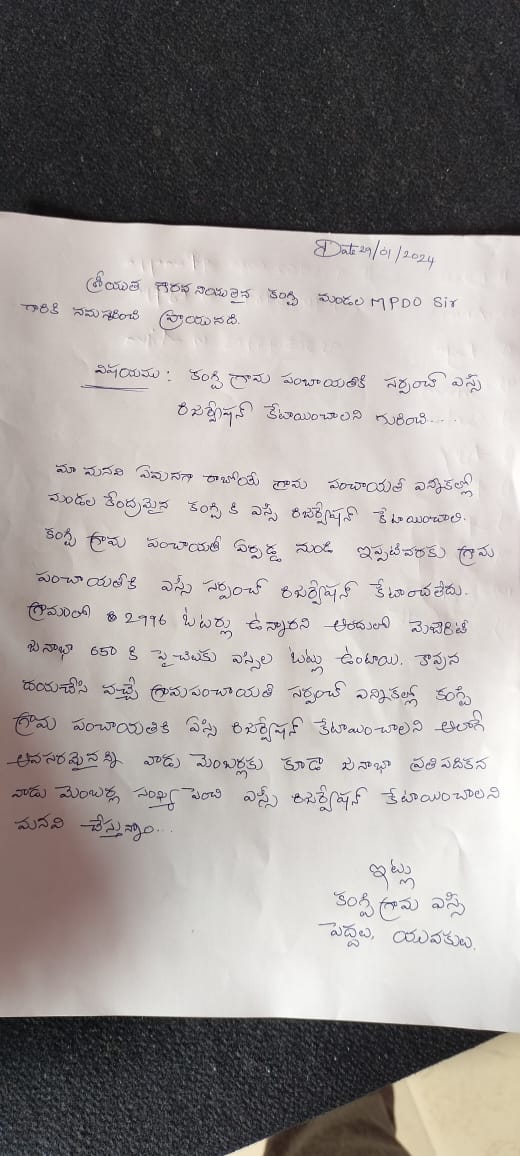 Date 29/01/2024
శ్రీయుత గౌరవనీయులైన కంగ్టి మండల MPDO Sir
గారికి నమస్కరించి వ్రాయునది.
విషయము : కంగ్టి గ్రామ పంచాయతీకి సర్పంచ్ ఎస్సీ
రిజర్వేషన్ కేటాయించాలని గురించి....
మా మనవి ఏమనగా రాబోయే గ్రామ పంచాయతీ ఎన్నికల్లో
మండల కేంద్రమైన కంగ్టి కి ఎస్సీ రిజర్వేషన్ కేటాయించాలి.
కంగ్టి గ్రామ పంచాయతీ ఏర్పడ్డ నుండి ఇప్పటివరకు గ్రామ
పంచాయతీకి ఎస్సీ సర్పంచ్ రిజర్వేషన్ కేటాంచలేదు.
గ్రామంలో 2996 ఓటర్లు ఉన్నారని అందులో మెజారిటీ
జనాభా 650 కి పైచిలుకు ఎస్సీల ఓట్లు ఉంటాయి. కావున
దయచేసి వచ్చే గ్రామపంచాయతీ సర్పంచ్ ఎన్నికల్లో కంగ్టి
గ్రామ పంచాయతికి ఏస్సి రిజర్వేషన్ కేటాయించాలని అలాగే
అవసరమైనన్ని వార్డు మెంబర్లకు కూడా జనాభా ప్రతిపదికన
వార్డు మెంబర్ల సంఖ్య పెంచి ఎస్సీ రిజర్వేషన్ కేటాయించాలని
మనవి చేస్తున్నాం...
ఇట్లు
కంగ్టి గ్రామ ఎస్సీ
పెద్దలు, యువకులు.